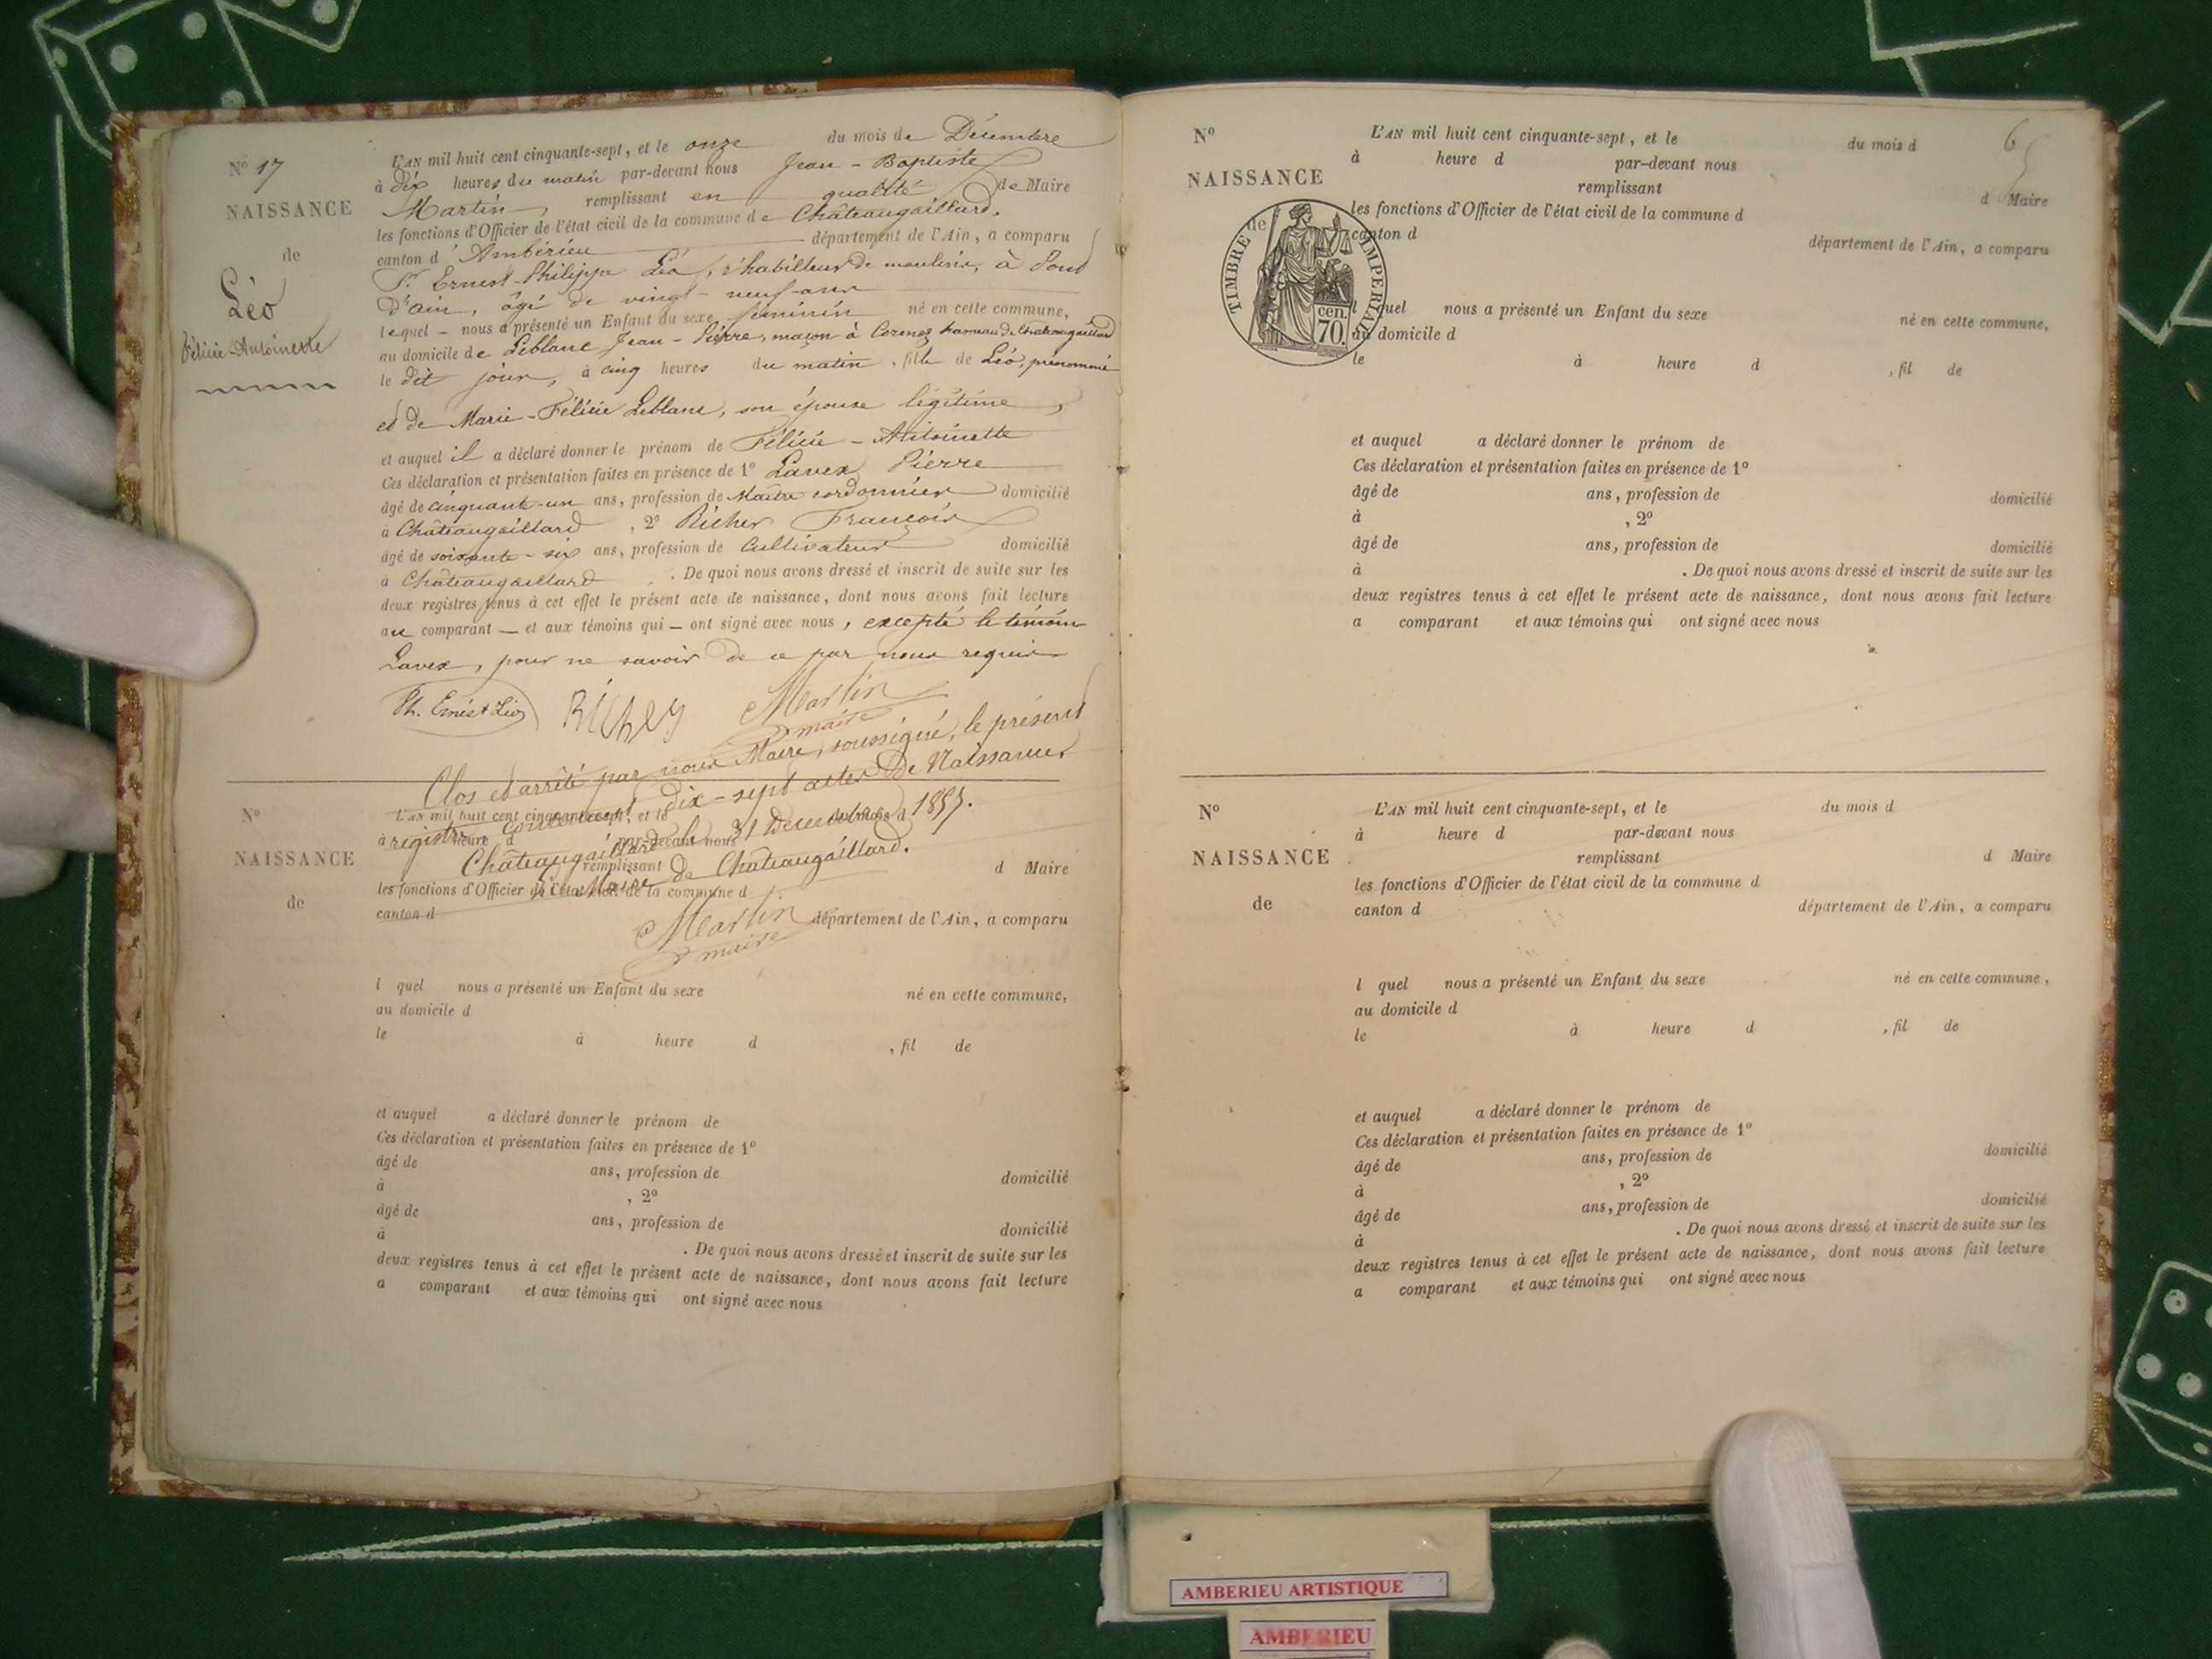 N° 17
NAISSANCE
de
Léo
Félicie-Antoinette
L'AN mil huit cent cinquante-sept, et le onze du mois de Décembre
à dix heures du matin par-devant nous Jean-Baptiste
Martin, remplissant en qualité de Maire
les fonctions d'Officier de l'état civil de la commune de Châteaugaillard,
canton d'Ambérieu département de l'Ain, a comparu
Sr. Ernest-Philippe Léo, r'habilleur de moulins, à Pont
D'ain, âgé de vingt-neuf ans
lequel nous a présenté un Enfant du sexe féminin né en cette commune,
au domicile de Leblanc Jean-Pierre, maçon à Cormoz hameau de Châteaugaillard
le dit jour, à cinq heures du matin, fille de Léo, prénommé
et de Marie-Félicie Leblanc, son épouse légitime,
et auquel il a déclaré donner le prénom de Félicie-Antoinette
Ces déclaration et présentation faites en présence de 1° Lavex Pierre
âgé de cinquante-un ans, profession de Maître cordonnier domicilié
à Châteaugaillard, 2° Richer François
âgé de soixante-six ans, profession de Cultivateur domicilié
à Châteaugaillard. De quoi nous avons dressé et inscrit de suite sur les
deux registres tenus à cet effet le présent acte de naissance, dont nous avons fait lecture
au comparant — et aux témoins qui — ont signé avec nous, excepté le témoin
Lavex, pour ne savoir de ce par nous requis
Ph. Ernest Léo Richer Martin
maire
Clos et arrêté par nous Maire, soussigné, le présent
registre contenant dix-sept actes de Naissances
Châteaugaillard le 31 Décembre 1857.
Le Maire de Châteaugaillard.
Martin
maire
N°
NAISSANCE
de
L'AN mil huit cent cinquante-sept, et le du mois d
à heure d par-devant nous
remplissant d Maire
les fonctions d'Officier de l'état civil de la commune d
canton d département de l'Ain, a comparu
l quel nous a présenté un Enfant du sexe né en cette commune,
au domicile d
le à heure d , fil de
et auquel a déclaré donner le prénom de
Ces déclaration et présentation faites en présence de 1°
âgé de ans, profession de domicilié
à , 2°
âgé de ans, profession de domicilié
à . De quoi nous avons dressé et inscrit de suite sur les
deux registres tenus à cet effet le présent acte de naissance, dont nous avons fait lecture
a comparant et aux témoins qui ont signé avec nous
65
N°
NAISSANCE
de
TIMBRE IMPERIAL
cen.
70.
L'AN mil huit cent cinquante-sept, et le du mois d
à heure d par-devant nous
remplissant d Maire
les fonctions d'Officier de l'état civil de la commune d
canton d département de l'Ain, a comparu
l quel nous a présenté un Enfant du sexe né en cette commune,
au domicile d
le à heure d , fil de
et auquel a déclaré donner le prénom de
Ces déclaration et présentation faites en présence de 1°
âgé de ans, profession de domicilié
à , 2°
âgé de ans, profession de domicilié
à . De quoi nous avons dressé et inscrit de suite sur les
deux registres tenus à cet effet le présent acte de naissance, dont nous avons fait lecture
a comparant et aux témoins qui ont signé avec nous
N°
NAISSANCE
de
L'AN mil huit cent cinquante-sept, et le du mois d
à heure d par-devant nous
remplissant d Maire
les fonctions d'Officier de l'état civil de la commune d
canton d département de l'Ain, a comparu
l quel nous a présenté un Enfant du sexe né en cette commune,
au domicile d
le à heure d , fil de
et auquel a déclaré donner le prénom de
Ces déclaration et présentation faites en présence de 1°
âgé de ans, profession de domicilié
à , 2°
âgé de ans, profession de domicilié
à . De quoi nous avons dressé et inscrit de suite sur les
deux registres tenus à cet effet le présent acte de naissance, dont nous avons fait lecture
a comparant et aux témoins qui ont signé avec nous
AMBERIEU ARTISTIQUE
AMBERIEU